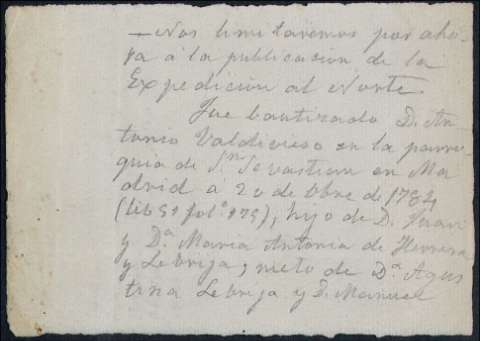 — Nos limitaremos por aho-
ra á la publicacion de la
Expedicion al Norte.
Fue bautizado D. An-
tonio Valdivieso en la parro-
quia de Sn Sevastian en Ma
drid a 20 de Obre de 1782,
(lib 51 folº 175), hijo de D. Juan
y Dª Maria Antonia de Herrera
y Lebrija, nieto de Dª Agus
tina Lebrija y D. Manuel